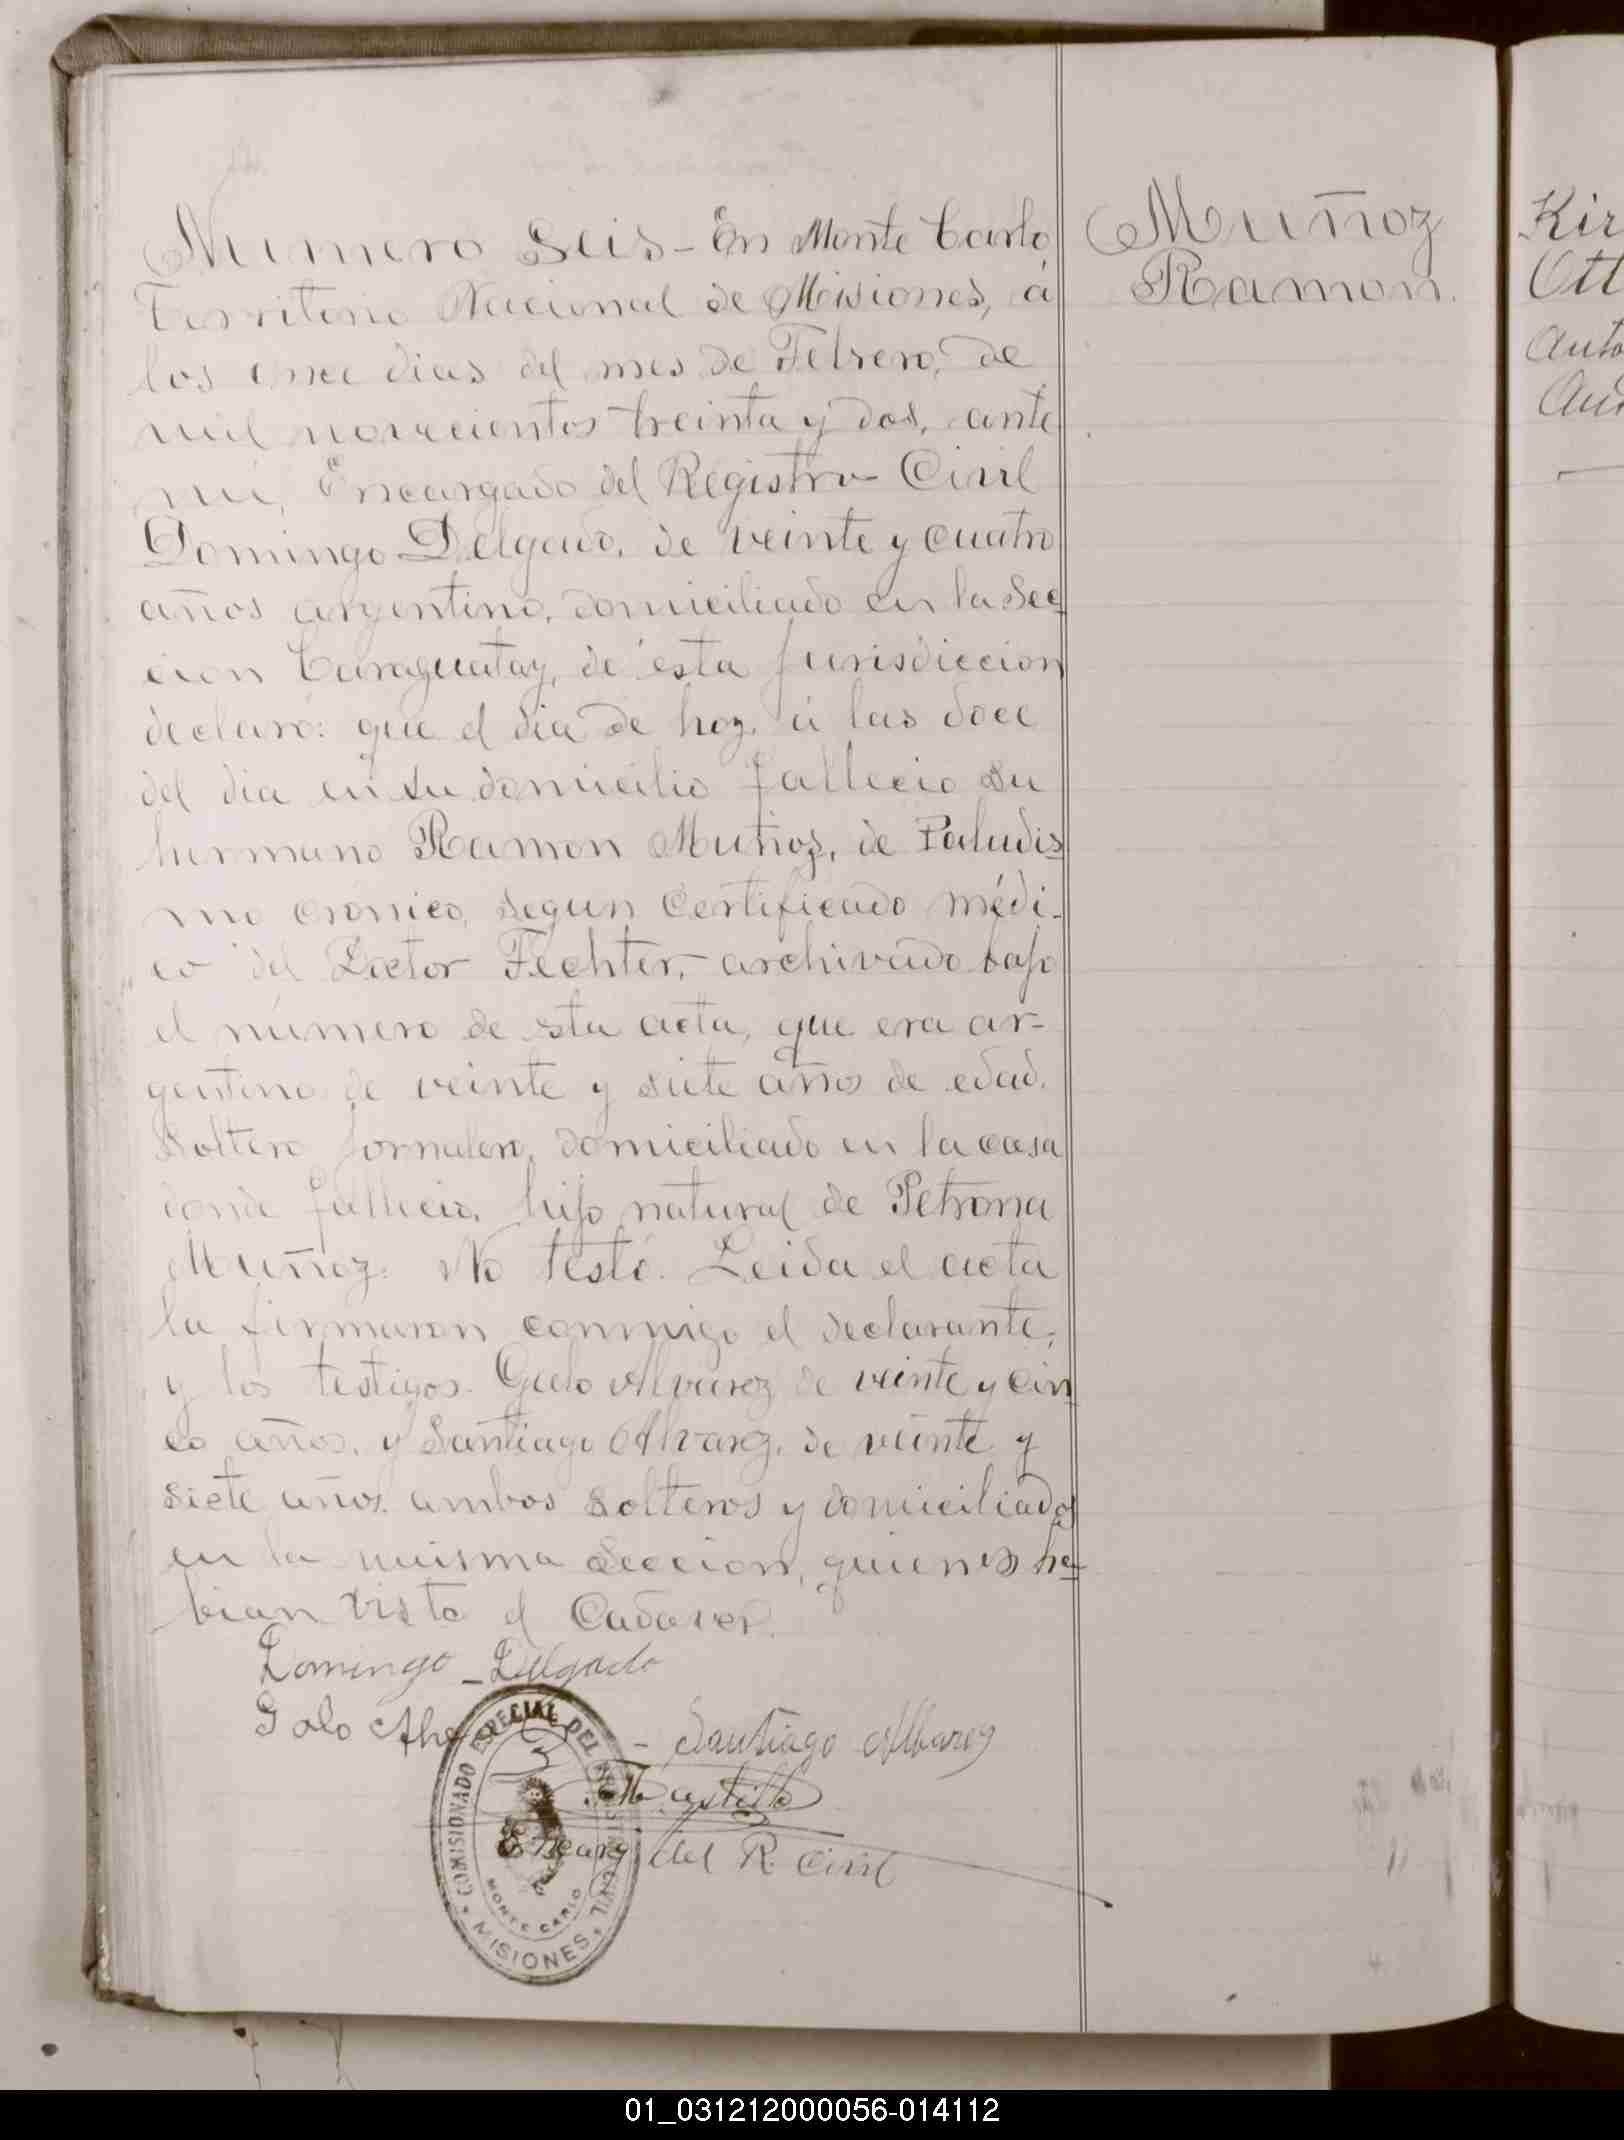 Numero Seis - En Monte Carlo,
Territorio Nacional de Misiones, á
los once dias del mes de Febrero, de
mil novecientos treinta y dos, ante
mi, Encargado del Registro Civil
Domingo Delgado, de veinte y cuatro
años argentino, domiciliado en la Sec
cion Caraguatay, de ésta jurisdiccion
declaró: que el dia de hoy, á las doce
del dia en su domicilio fallecio su
hermano Ramon Muñoz, de Paludis
mo cronico, segun certificado médi-
co del Doctor Fechter, archivado bajo
el número de esta acta, que era ar-
gentino de veinte y siete años de edad.
Soltero jornalero, domiciliado en la casa
donde fallecio, hijo natural de Petrona
Muñoz. No testó. Leida el acta
la firmaron conmigo el declarante,
y los testigos. Galo Alvarez de veinte y cin
co años, y Santiago Alvarez, de veinte y
siete años, ambos solteros y domiciliados
en la misma Seccion, quienes ha
bian visto el Cadaver.
Domingo Delgado
Galo
- Santiago Albarez
Castillo
Encarg del R. Civil
COMISIONADO ESPECIAL DEL CIVIL
MONTE CARLO
MISIONES
Muñoz
Ramon.
Kir
Ott
01_031212000056-014112